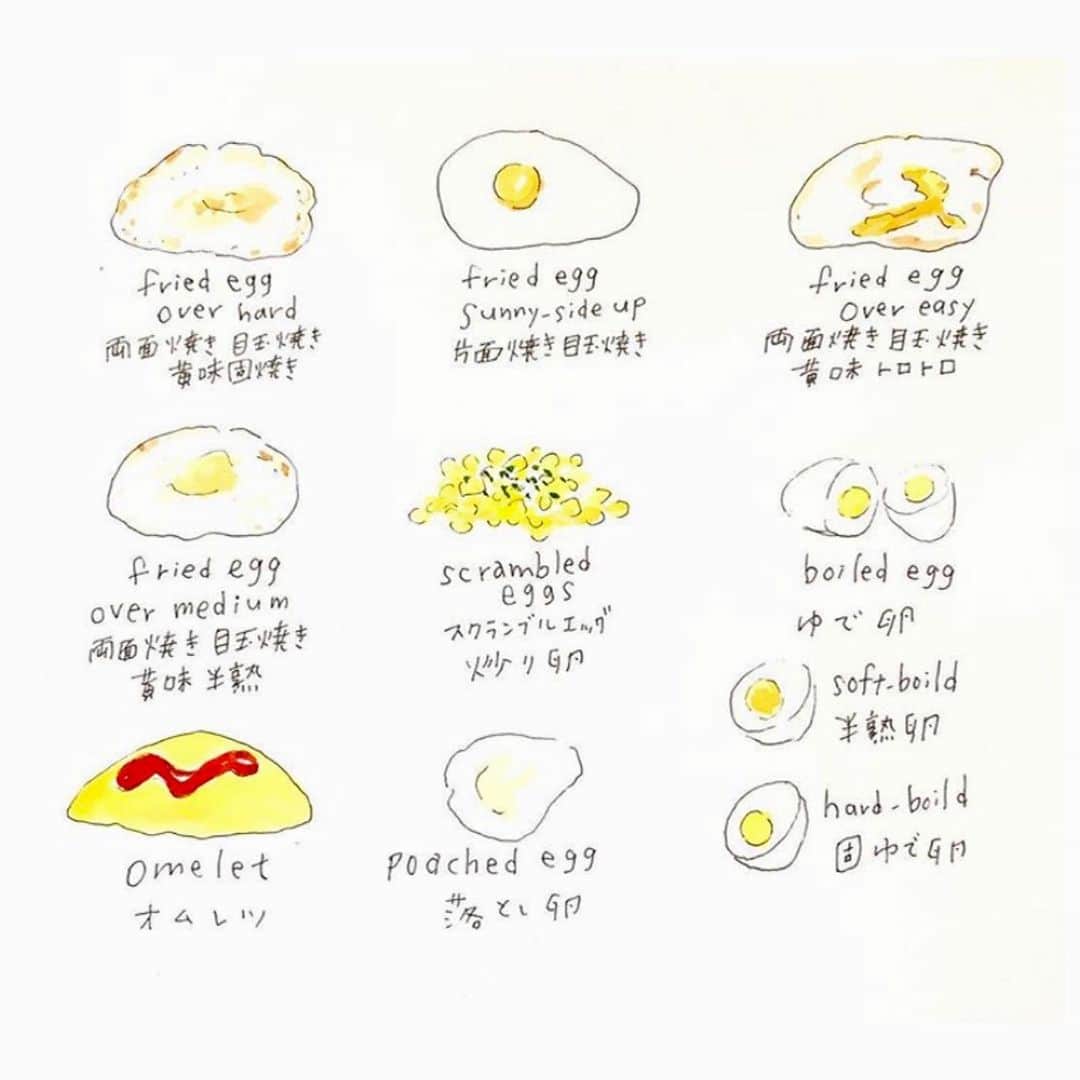 fried egg
over hard
両面焼き 目玉焼き
黄味固焼き
fried egg
sunny-side up
片面焼き目玉焼き
fried egg
over easy
両面焼き 目玉焼き
黄味 トロトロ
fried egg
over medium
両面焼き 目玉焼き
黄味 半熟
scrambled
eggs
スクランブルエッグ
炒り卵
boiled egg
ゆで卵
soft-boild
半熟卵
hard-boild
固ゆで卵
omelet
オムレツ
poached egg
落とし卵